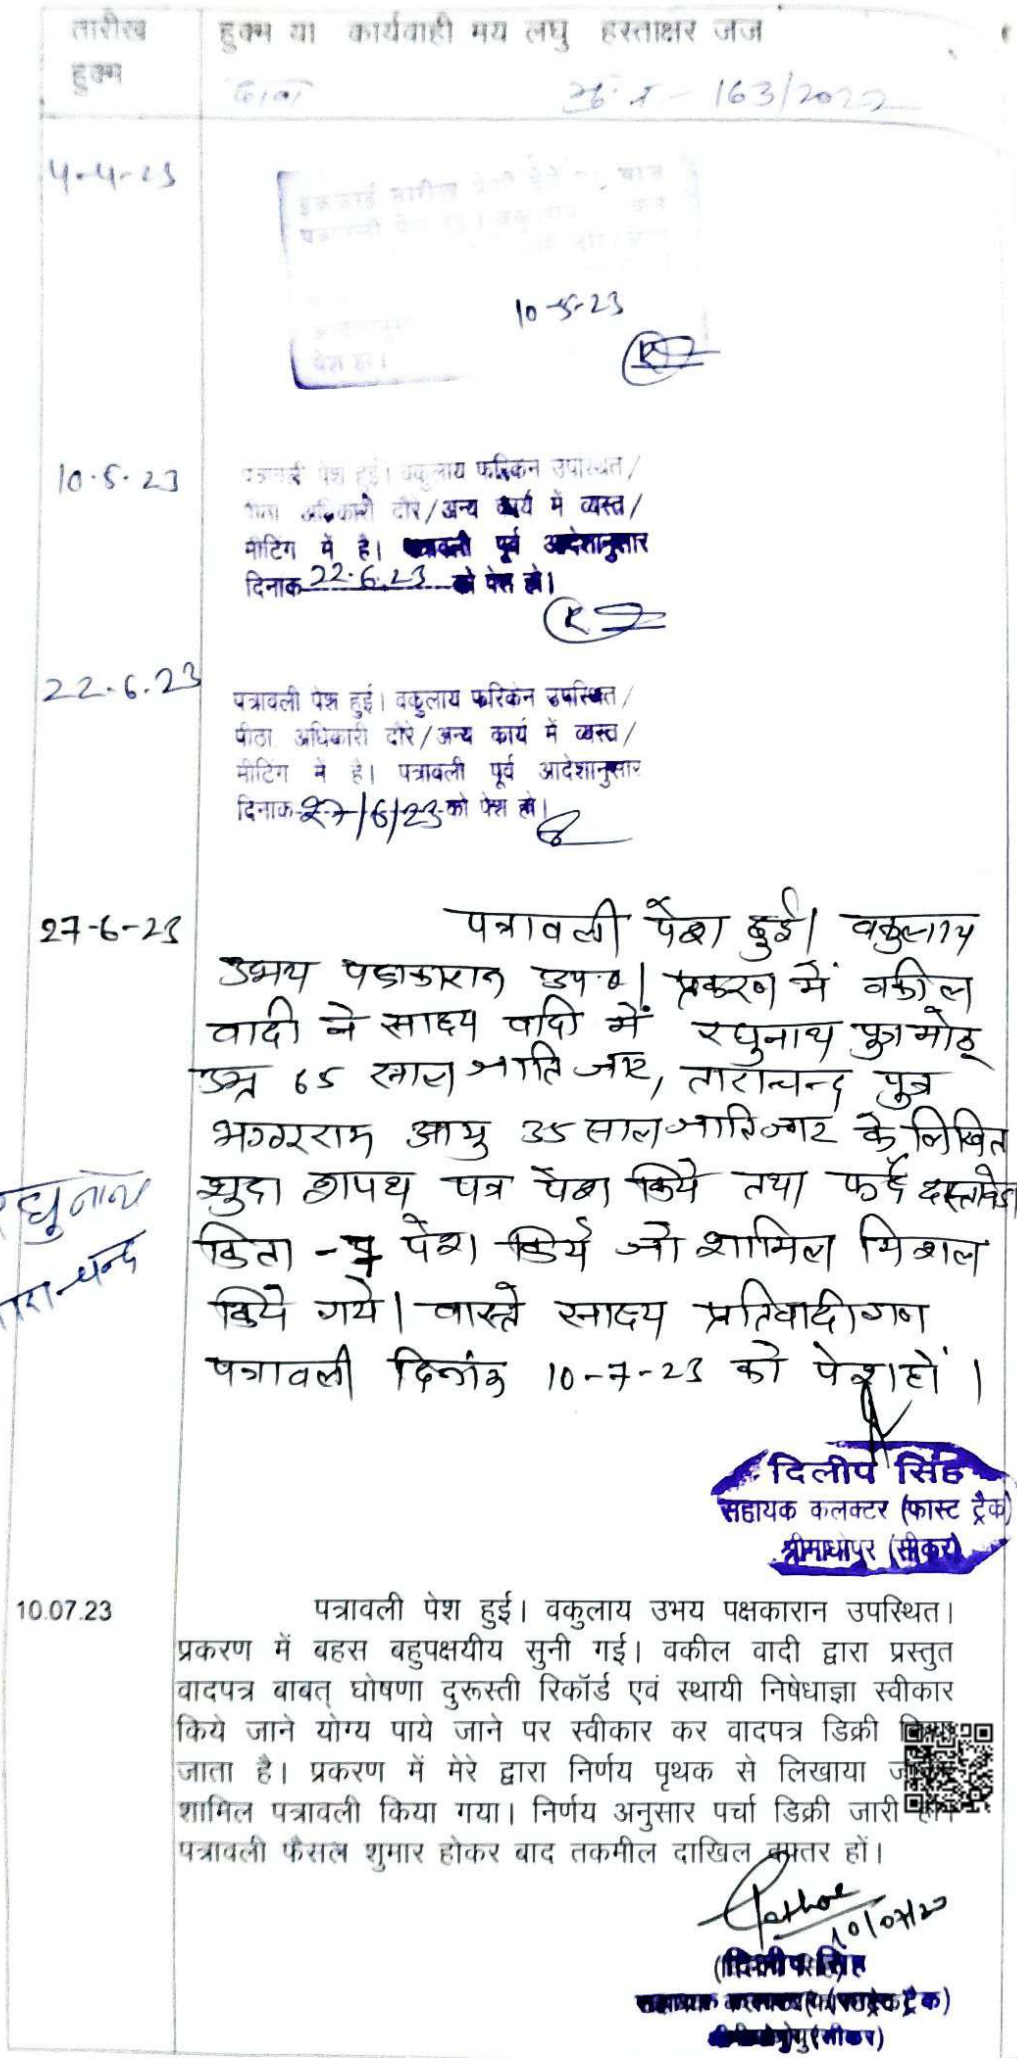 तारीख हुक्म या कार्यवाही मय लघु हस्ताक्षर जज
हुक्म
दावा 163/2022
4-4-23
तारीख पेशी
10-5-23
पेश हो।
10.5.23 पत्रावली पेश हुई। वकुलाय फरिकन उपस्थित/
अधिकारी दौरे/अन्य कार्य में व्यस्त/
मीटिंग में है। पत्रावली पूर्व आदेशानुसार
दिनाक 22.6.23 को पेश हो।
22.6.23 पत्रावली पेश हुई। वकुलाय फरिकन उपस्थित/
पीठा. अधिकारी दौरे/अन्य कार्य में व्यस्त/
मीटिंग में है। पत्रावली पूर्व आदेशानुसार
दिनाक 27/6/23 को पेश हो।
27-6-23 पत्रावली पेश हुई। वकुलाय
उभय पक्षकारान उप०। प्रकरण में वकील
वादी ने साक्ष्य वादी में रघुनाथ पुत्र मोठू
उम्र 65 साल जाति जाट, ताराचन्द पुत्र
आयु 35 साल जाति जाट के लिखित
शुदा शपथ पत्र पेश किये तथा फर्द दस्तावेज
रघुनाथ
किता पेश किये जो शामिल मिशल
ताराचन्द
किये गये। वास्ते साक्ष्य प्रतिवादीगण
पत्रावली दिनांक 10-7-23 को पेश हों।
दिलीप सिंह
सहायक कलक्टर (फास्ट ट्रैक)
श्रीमाधोपुर (सीकर)
10.07.23 पत्रावली पेश हुई। वकुलाय उभय पक्षकारान उपस्थित।
प्रकरण में बहस बहुपक्षयीय सुनी गई। वकील वादी द्वारा प्रस्तुत
वादपत्र बाबत् घोषणा दुरूस्ती रिकॉर्ड एवं स्थायी निषेधाज्ञा स्वीकार
किये जाने योग्य पाये जाने पर स्वीकार कर वादपत्र डिक्री
जाता है। प्रकरण में मेरे द्वारा निर्णय पृथक से लिखाया
शामिल पत्रावली किया गया। निर्णय अनुसार पर्चा डिक्री जारी
पत्रावली फैसल शुमार होकर बाद तकमील दाखिल दफ्तर हों।
10/07/23
(दिलीप सिंह)